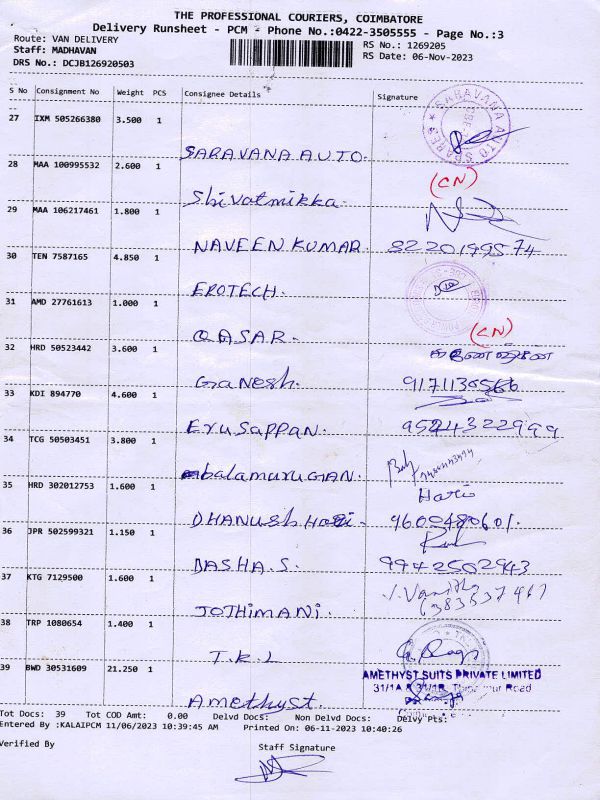 THE PROFESSIONAL COURIERS, COIMBATORE
Delivery Runsheet - PCM - Phone No.:0422-3505555 - Page No.:3
Route: VAN DELIVERY
RS No.: 1269205
Staff: MADHAVAN
RS Date: 06-Nov-2023
DRS No.: DCJB126920503
S No Consignment No Weight PCS Consignee Details Signature
27 IXM 505266380 3.500 1
SARAVANA AUTO SPARES
SARAVANA AUTO.
28 MAA 100995532 2.600 1
(CN)
Shivatmikka.
29 MAA 106217461 1.800 1
NAVEEN KUMAR. 8220199574
30 TEN 7587165 4.850 1
EROTECH.
31 AMD 27761613 1.000 1
(CN)
QASAR.
32 HRD 50523442 3.600 1
Ganesh.
33 KDI 894770 4.600 1
Erusappan. 9524322999
34 TCG 50503451 3.800 1
balamuruGAN.
35 HRD 302012753 1.600 1
Haris
DHANUSh Hari.
36 JPR 502599321 1.150 1
BASHA.S. 9942502943
37 KTG 7129500 1.600 1
JOTHIMANI.
38 TRP 1080654 1.400 1
T.K.L
39 BWD 30531609 21.250 1
AMETHYST SUITS PRIVATE LIMITED
31/1A Road
Amethyst.
Tot Docs: 39 Tot COD Amt: 0.00 Delvd Docs: Non Delvd Docs: Delvy Pts:
Entered By :KALAIPCM 11/06/2023 10:39:45 AM Printed On: 06-11-2023 10:40:26
Verified By
Staff Signature